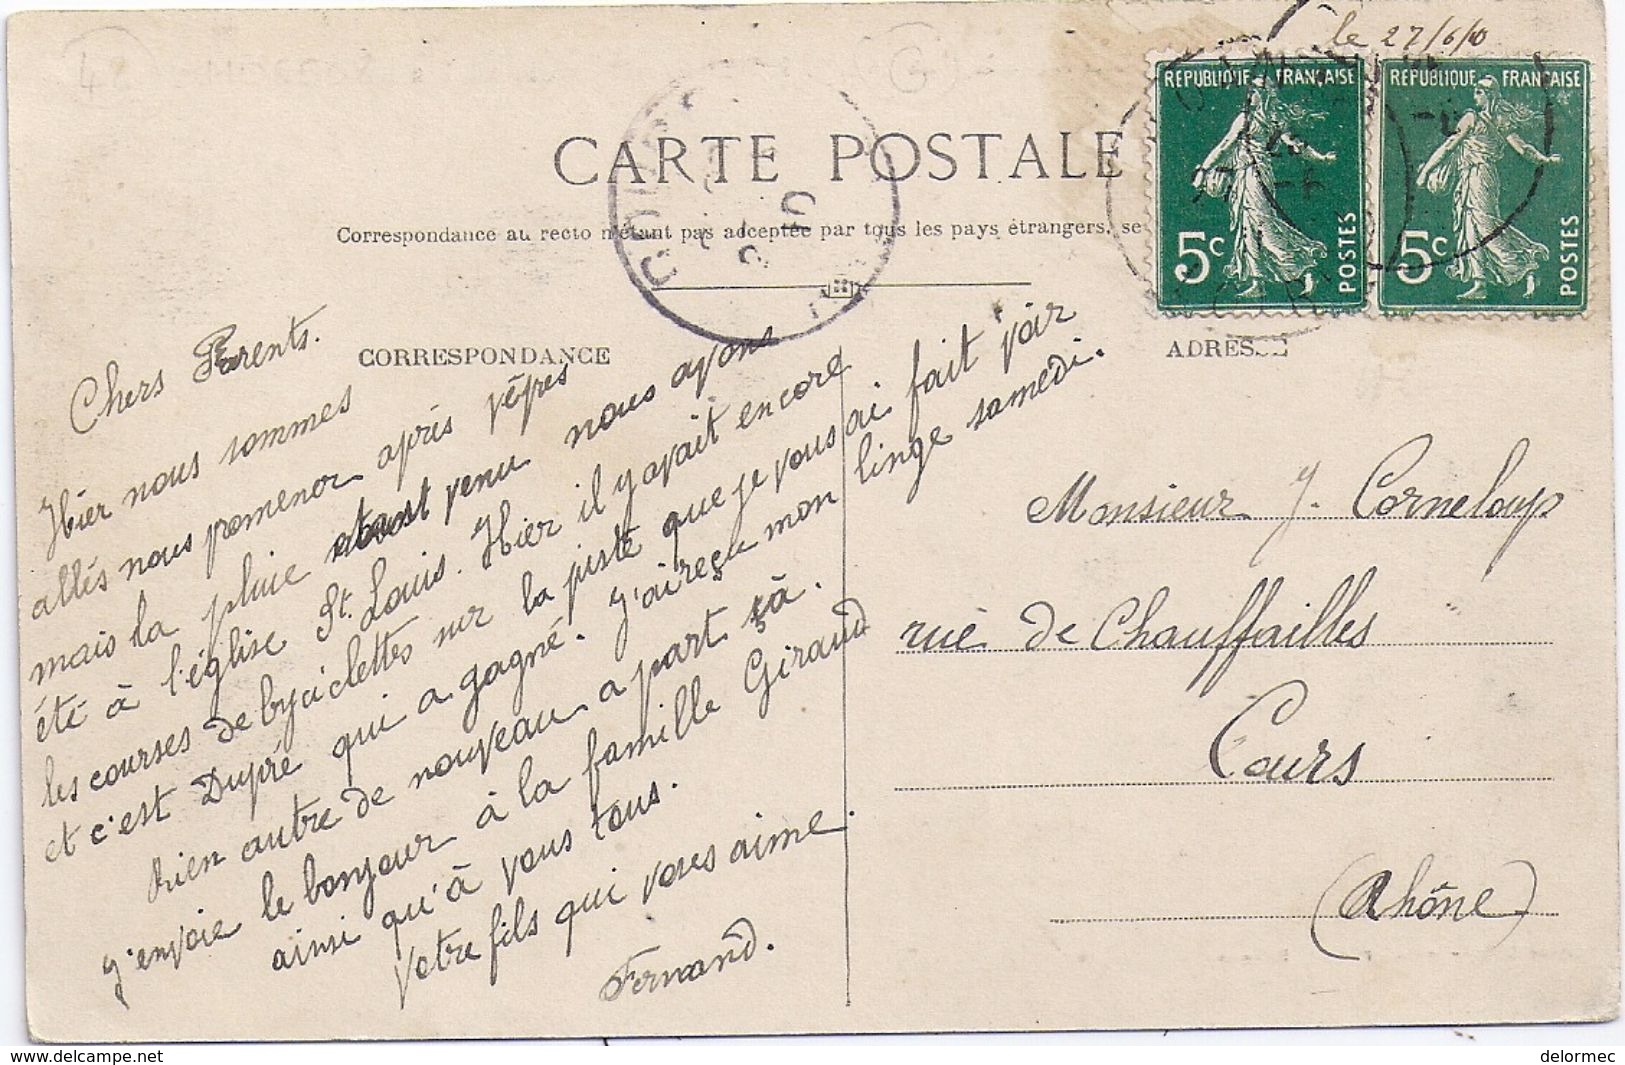 le 27/6/10
RÉPUBLIQUE FRANÇAISE
5c
POSTES
RÉPUBLIQUE FRANÇAISE
5c
POSTES
CARTE POSTALE
Correspondance au recto n'étant pas acceptée par tous les pays étrangers, se
CORRESPONDANCE
ADRESSE
Chers Parents.
Hier nous sommes
allés nous promener après vêpres
mais la pluie étant venu nous avons
été à l'église St. Louis. Hier il y avait encore
les courses de byciclettes sur la piste que je vous ai fait voir
et c'est Dupré qui a gagné. J'ai reçu mon linge samedi.
Rien autre de nouveau a part çà.
J'envoie le bonjour à la famille Giraud
ainsi qu'à vous tous.
Votre fils qui vous aime.
Fernand.
Monsieur J. Corneloup
rue de Chauffailles
Cours
(Rhône)
www.delcampe.net
delormec